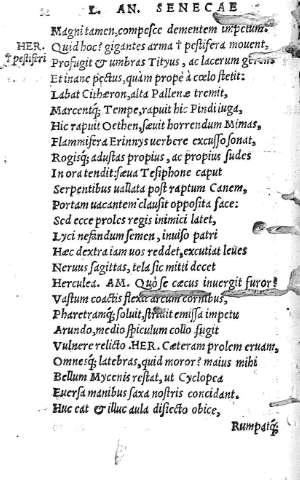 L. AN. SENECAE
Magni tamen, compesce dementem impetum.
HER. Quid hoc? gigantes arma † pestifera mouent,
† pestiferi Profugit & umbras Tityus, ac lacerum gerens
Et inane pectus, quàm propè à cœlo stetit:
Labat Cithæron, alta Pallenæ tremit,
Marcentq́; Tempe, rapuit hic Pindi iuga,
Hic rapuit Oethen, sæuit horrendum Mimas,
Flammifera Erinnys uerbere excusso sonat,
Rogisq́; adustas propius, ac propius sudes
In ora tendit: sæua Tesiphone caput
Serpentibus uallata post raptum Canem,
Portam uacantem clausit opposita face:
Sed ecce proles regis inimici latet,
Lyci nefandum semen, inuiso patri
Hæc dextra iam uos reddet, excutiat leues
Neruus sagittas, tela sic mitti decet
Herculea. AM. Quò se cæcus inuergit furor?
Vastum coactis flexit arcum cornibus,
Pharetramq́; soluit, stridet emissa impetu
Arundo, medio spiculum collo fugit
Vulnere relicto. HER. Cæteram prolem eruam,
Omnesq́; latebras, quid moror? maius mihi
Bellum Mycenis restat, ut Cyclopea
Euersa manibus saxa nostris concidant.
Huc eat & illuc aula disiecto obice,
Rumpatq́;